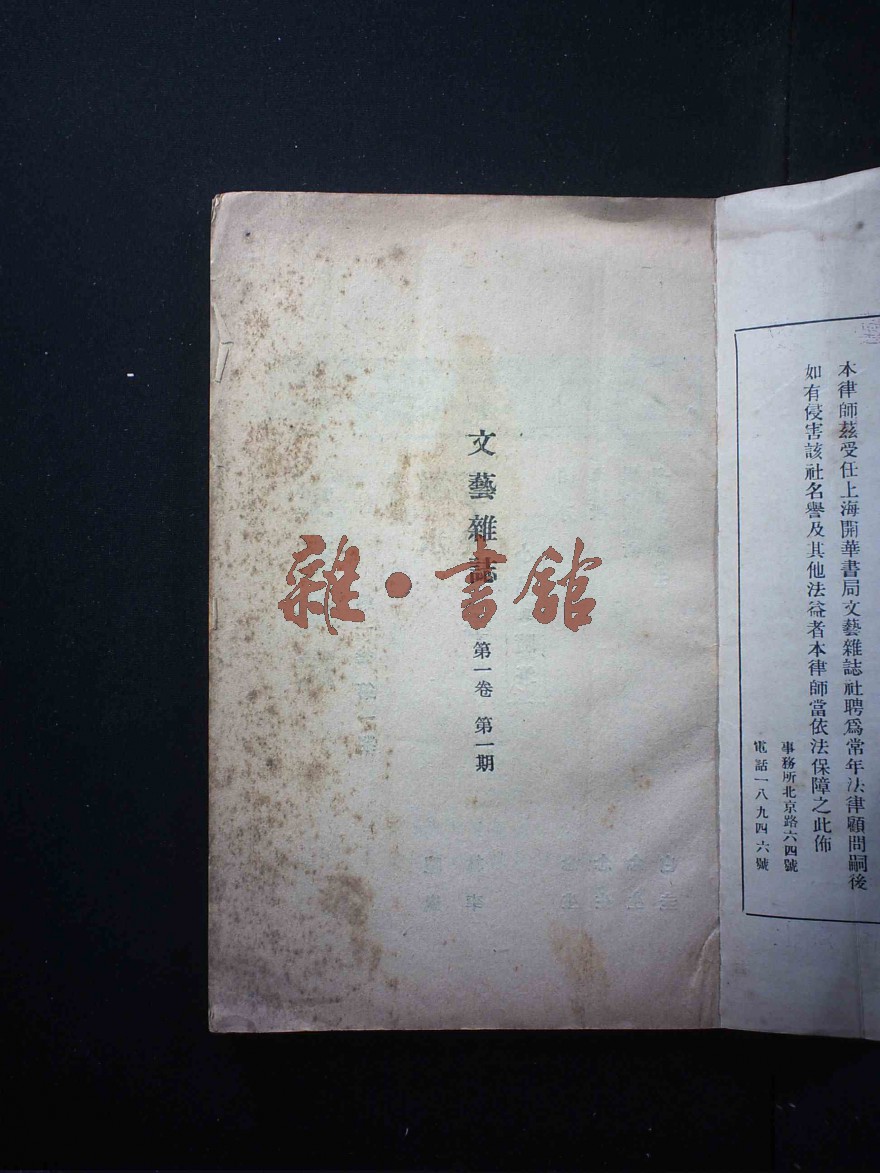 本律師茲受任上海開華書局文藝雜誌社聘爲常年法律顧問嗣後
如有侵害該社名譽及其他法益者本律師當依法保障之此佈
事務所北京路六四號
電話一八九四六號
文藝雜誌 第一卷 第一期
雜·書館